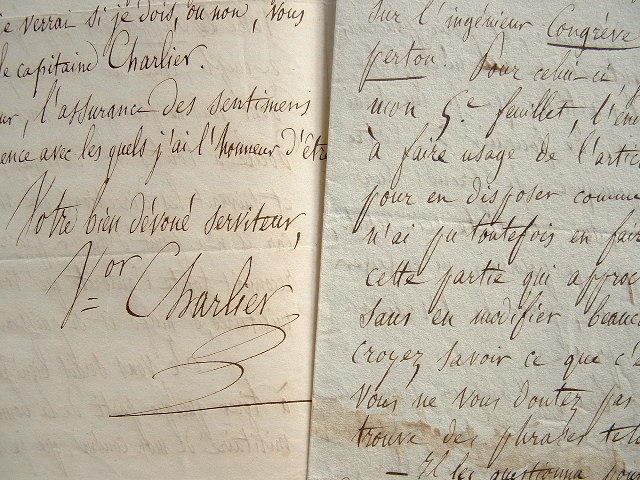 je verrai si je dois, ou non, vous
le capitaine Charlier.
l'assurance des sentimens
avec les quels j'ai l'honneur d'être
Votre bien dévoué serviteur,
Vor Charlier
sur l'ingénieur Congrève
perton. Pour celui-ci
mon 5.e feuillet, l'en
à faire usage de l'artic
pour en disposer comme
n'ai pu toutefois en fair
cette partie qui approc
sans en modifier beauc
croyez savoir ce que c'e
vous ne vous doutez pas
trouve des phrases tel
— Il les questionna pour